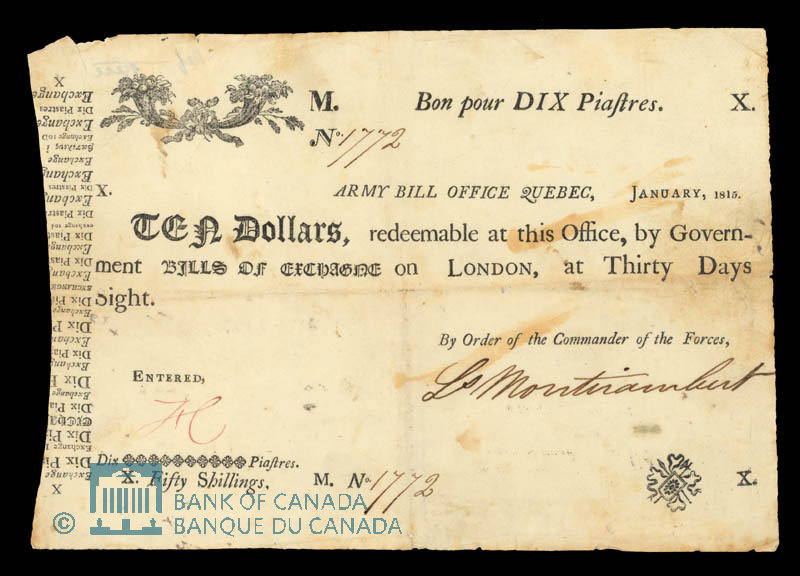 M. Bon pour DIX Piaſtres. X.
No. 1772
X. ARMY BILL OFFICE QUEBEC, JANUARY, 1815.
TEN Dollars, redeemable at this Office, by Govern-
ment BILLS OF EXCHAGNE on LONDON, at Thirty Days
Sight.
By Order of the Commander of the Forces,
ENTERED,
Ls Montizambert
Dix Piaſtres.
X. Fifty Shillings, M. No. 1772 X.
© BANK OF CANADA
BANQUE DU CANADA
X
Exchange
Dix Piastres
Exchange
Exchange
Exchange
Dix Piastres
Exchange
X